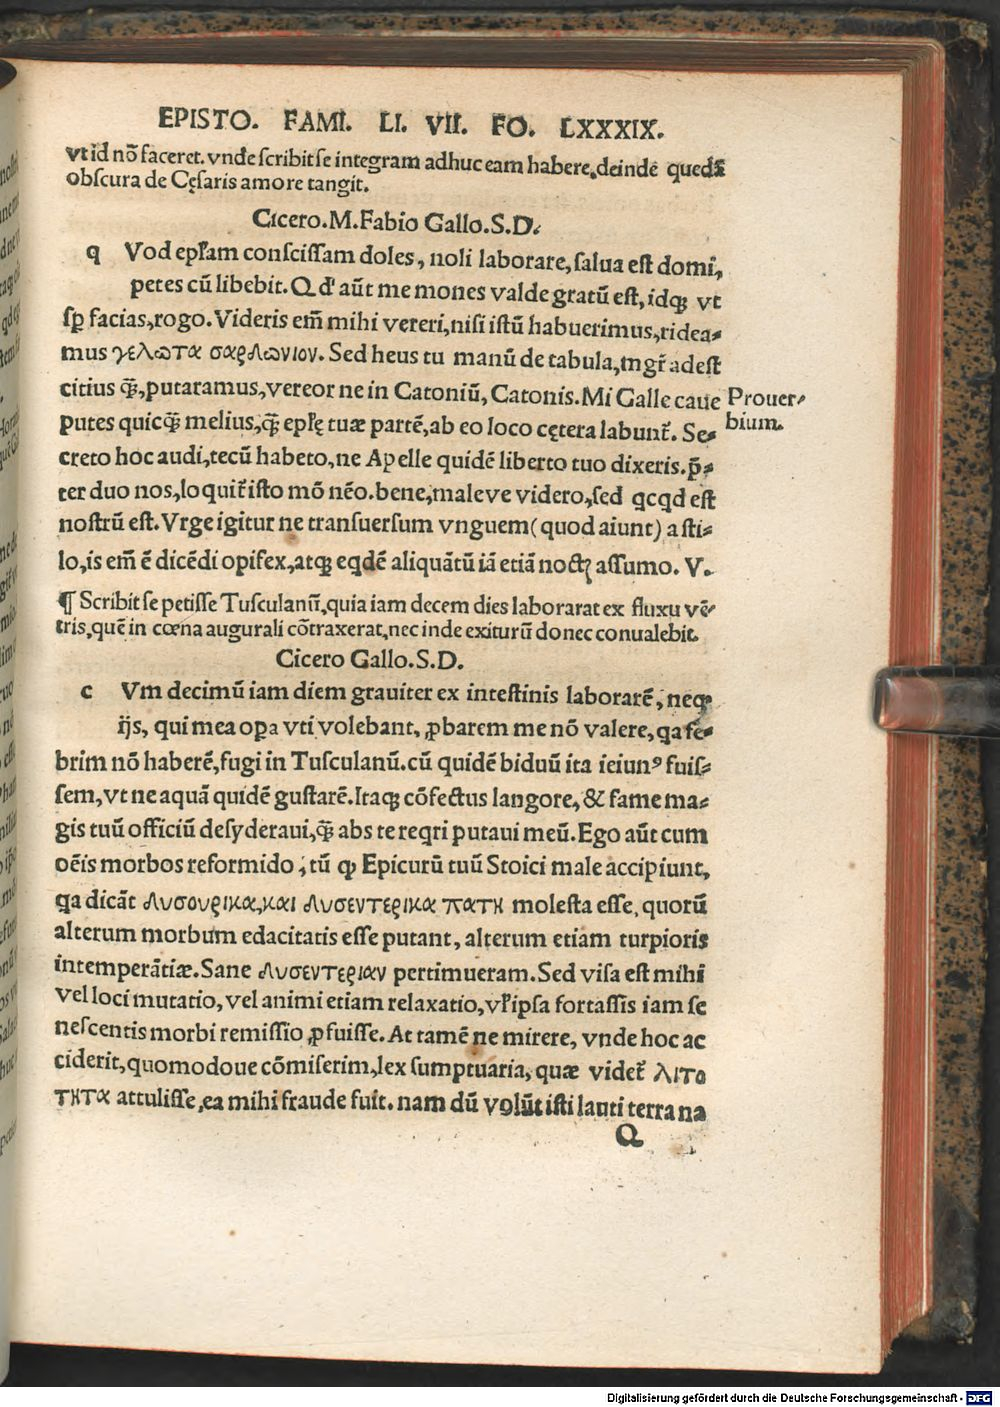 EPISTO. FAMI. LI. VII. FO. LXXXIX.
vt id nō faceret. vnde scribit se integram adhuc eam habere, deinde quedā
obscura de Cęsaris amore tangit.
Cicero. M. Fabio Gallo. S. D.
q Vod epłam conscissam doles, noli laborare, salua est domi,
petes cū libebit. Qđ aūt me mones valde gratū est, idqꝫ vt
sp̄ facias, rogo. Videris em̄ mihi vereri, nisi istū habuerimus, ridea⸗
mus γελωτα σαρδωνιον. Sed heus tu manū de tabula, mgr̄ adest
citius q̄ꝫ, putaramus, vereor ne in Catoniū, Catonis. Mi Galle caue
Prouer⸗
bium.
putes quicq̄ꝫ melius, q̄ꝫ epłę tuæ partē, ab eo loco cętera labunt᷑. Se⸗
creto hoc audi, tecū habeto, ne Apelle quidē liberto tuo dixeris. p̄⸗
ter duo nos, loquit᷑ isto mō nēo. bene, maleve videro, sed qcqd est
nostrū est. Vrge igitur ne transuersum vnguem (quod aiunt) a sti⸗
lo, is em̄ ē dicēdi opifex, atqꝫ eqdē aliquātū iā etiā noctꝭ assumo. V.
¶ Scribit se petisse Tusculanū, quia iam decem dies laborarat ex fluxu vē⸗
tris, quē in cœna augurali cōtraxerat, nec inde exiturū donec conualebit.
Cicero Gallo. S. D.
c Vm decimū iam diem grauiter ex intestinis laborarē, neqꝫ
ijs, qui mea opa vti volebant, ꝓbarem me nō valere, qa fe⸗
brim nō haberē, fugi in Tusculanū. cū quidē biduū ita ieiunꝰ fuis⸗
sem, vt ne aquā quidē gustarē. Itaqꝫ cōfectus langore, & fame ma⸗
gis tuū officiū desyderaui, q̄ꝫ abs te reqri putaui meū. Ego aūt cum
oēis morbos reformido, tū ꝙ Epicurū tuū Stoici male accipiunt,
qa dicāt δυσουρικα, και δυσεντερικα παθη molesta esse, quorū
alterum morbum edacitatis esse putant, alterum etiam turpioris
intemperātiæ. Sane δυσεντεριαν pertimueram. Sed visa est mihi
vel loci mutatio, vel animi etiam relaxatio, vł ipsa fortassis iam se
nescentis morbi remissio ꝓfuisse. At tamē ne mirere, vnde hoc ac
ciderit, quomodoue cōmiserim, lex sumptuaria, quæ videt᷑ λιτο
τητα attulisse, ea mihi fraude fuit. nam dū volūt isti lauti terra na
Q
Digitalisierung gefördert durch die Deutsche Forschungsgemeinschaft - DFG